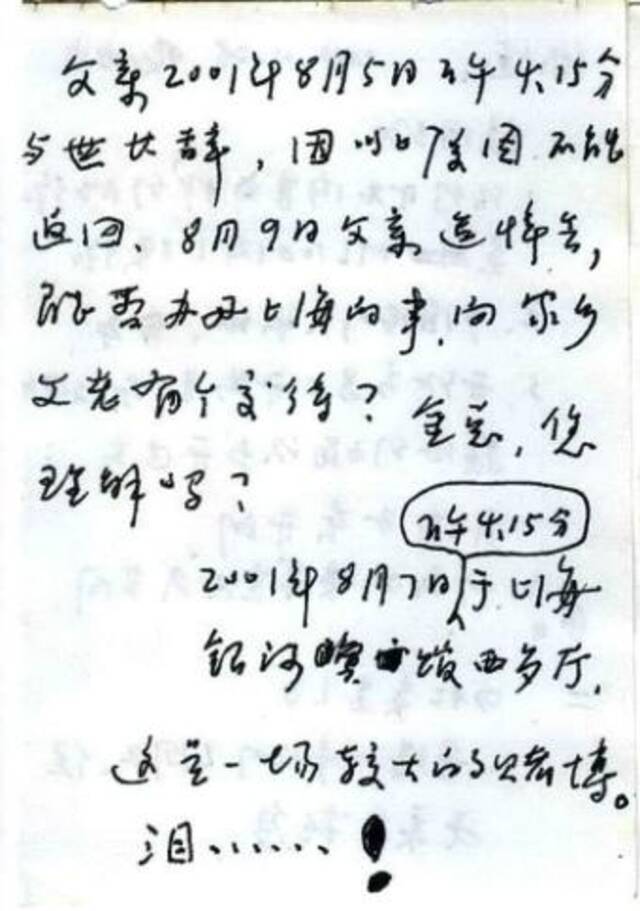 父亲2001年8月5日下午4.15分
与世长辞,因以上原因不能
返回、8月9日父亲追悼会,
能否办好上海的事,向家乡
父老有个交待?金总,您
理解吗?
下午4.15分
2001年8月7日于上海
银河宾馆西 厅.
这是一场较大的赌博。
泪......!